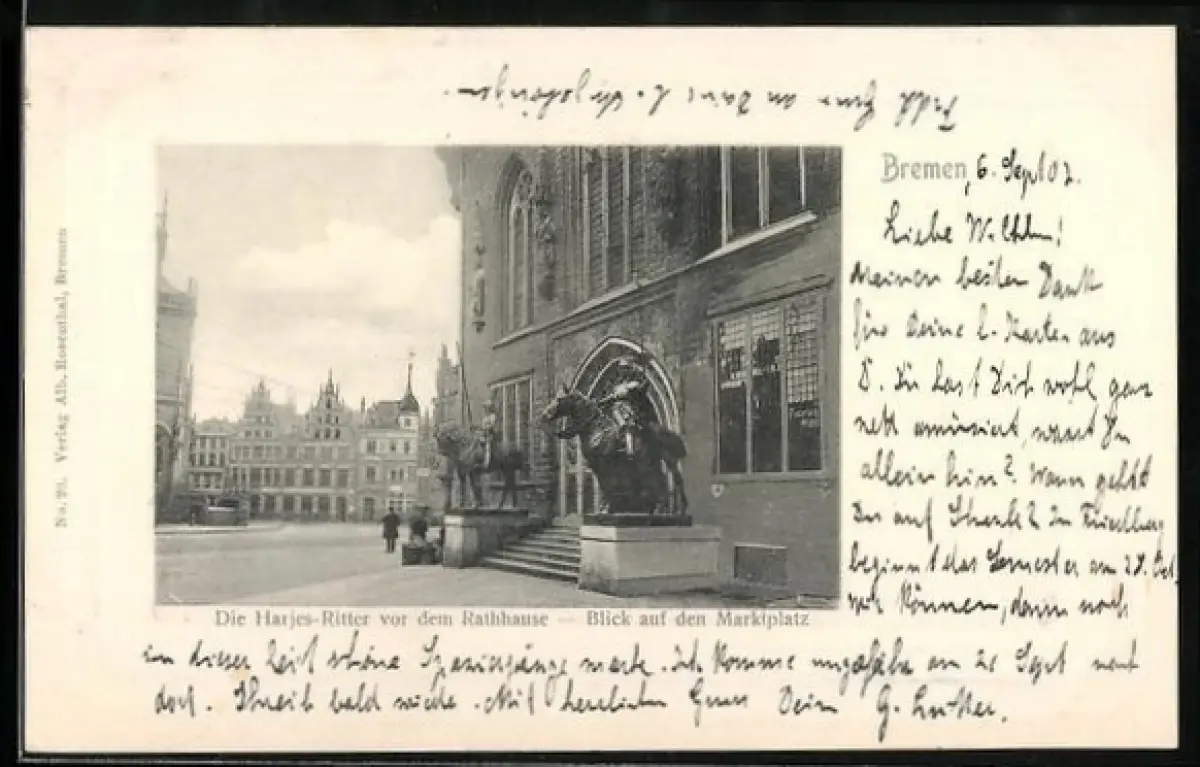 Bremen, 6. Sept 02.
Liebe
Meinen besten Dank
für Deine l. Karten aus
Du hast Dich wohl ganz
nett amüsiert, warst Du
allein hin? Wann gehst
Du auf
beginnt das Semester am
wir können, dann noch
in dieser Zeit schöne Spaziergänge machen. Ich komme ungefähr am Sept nach
dort. Schreib bald wieder. Mit herzlichem Gruss Dein G.
Die Harjes-Ritter vor dem Rathhause — Blick auf den Marktplatz
No. 28. Verlag Alb. Rosenthal, Bremen
Gruss an Deine l.